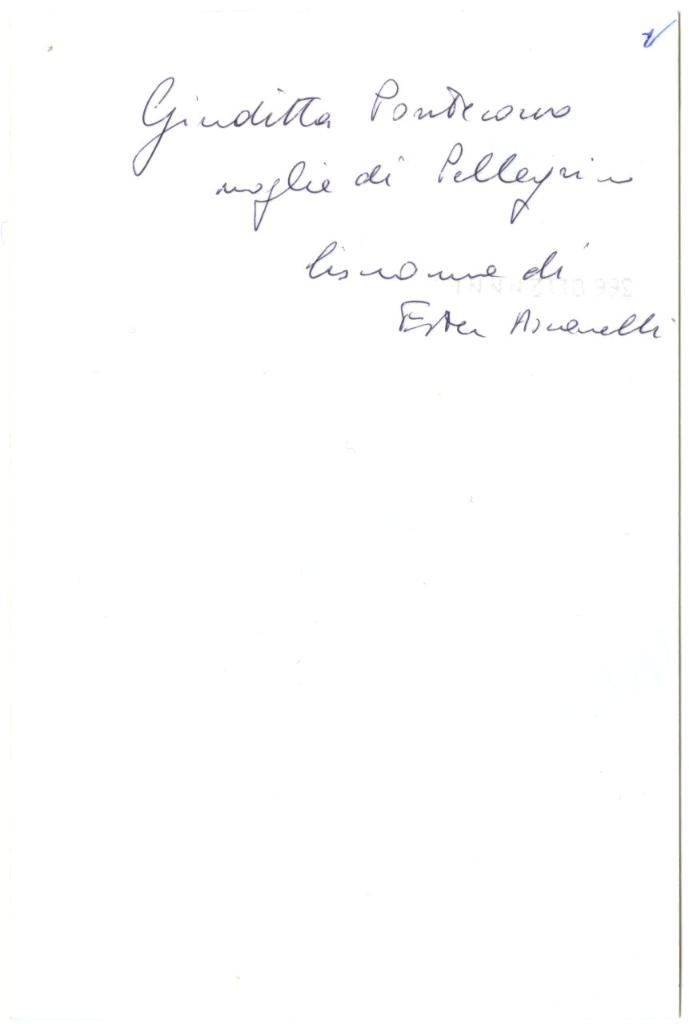 Giuditta Pontecorvo
moglie di Pellegrino
bisnonna di
Ester Ascarelli